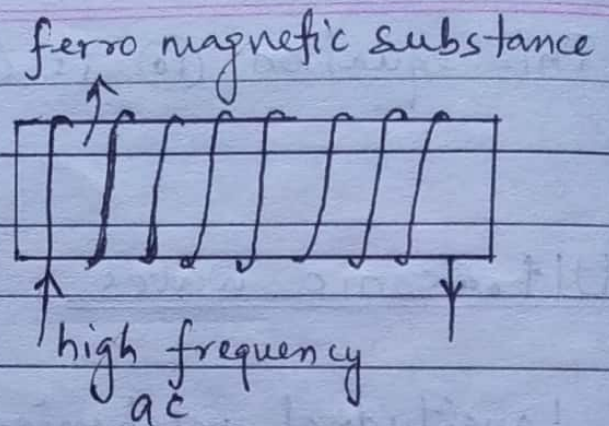 ferro magnetic substance
high frequency
ac